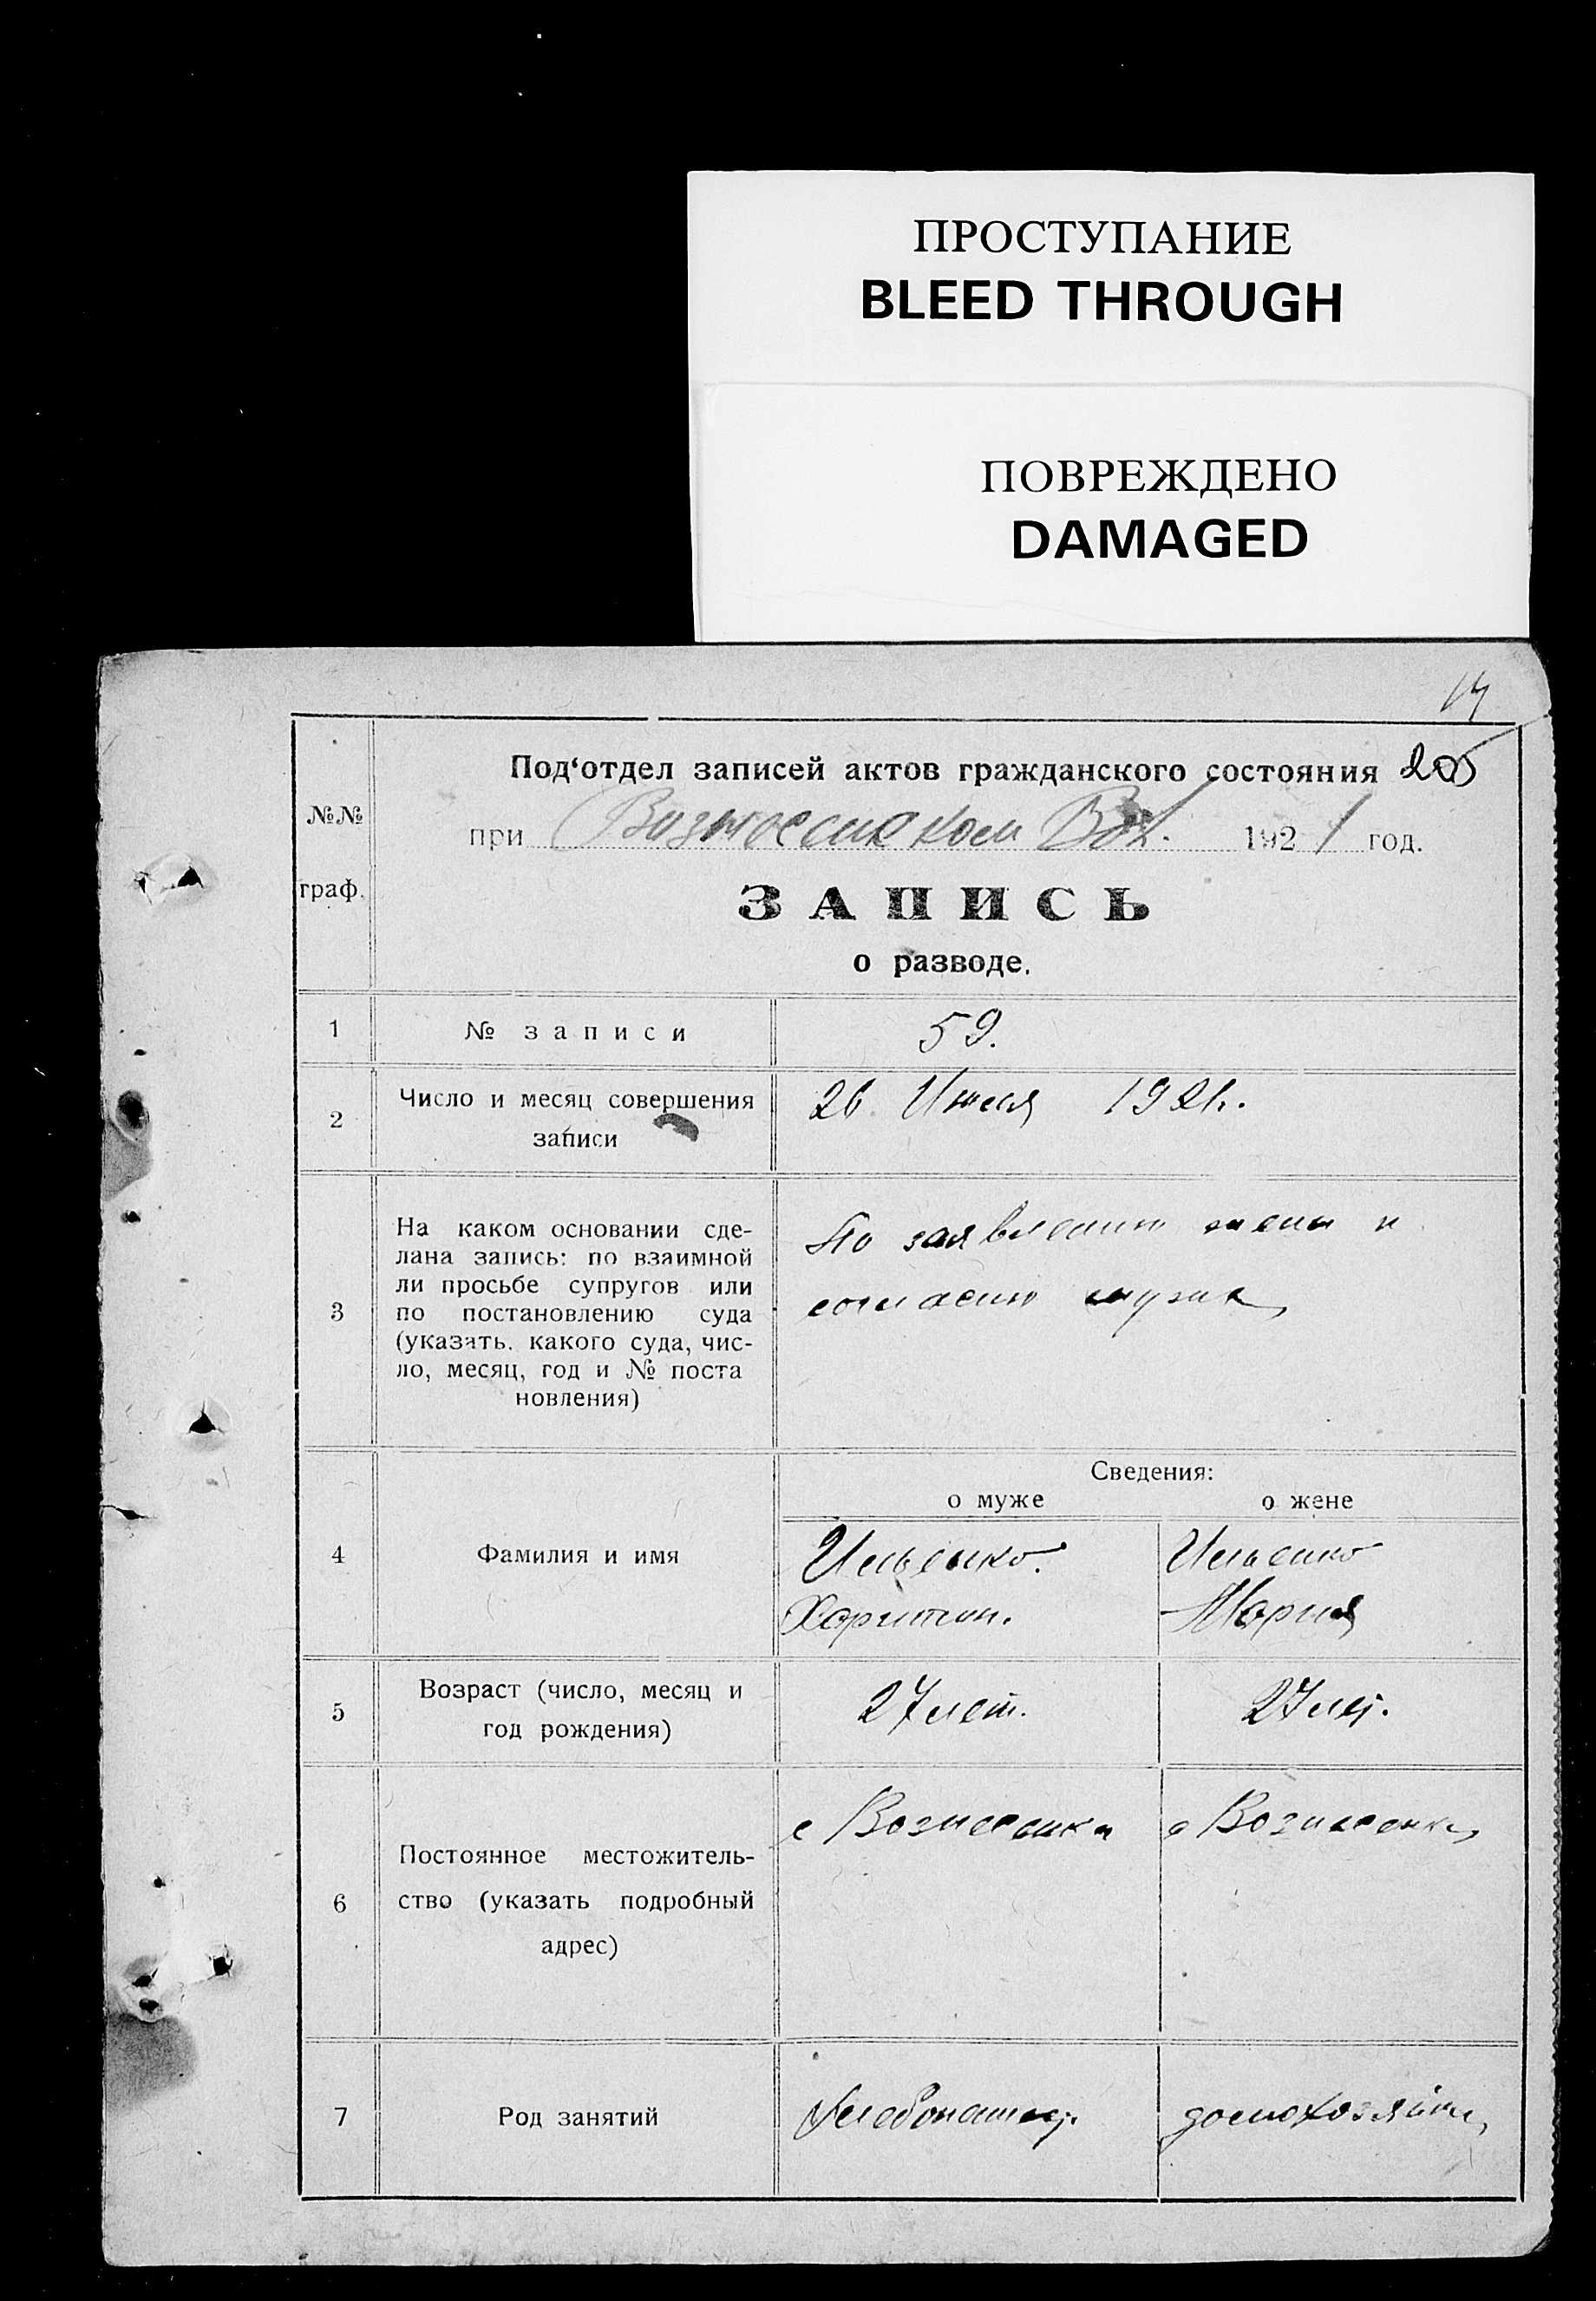 ПРОСТУПАНИЕ
BLEED THROUGH
ПОВРЕЖДЕНО
DAMAGED
Под‘отдел записей актов гражданского состояния 205
№№
при Вол. 1921 год.
граф.
ЗАПИСЬ
о разводе.
1 № записи 59.
2 Число и месяц совершения 26 1921.
записи
3 На каком основании сде- По заявлению жены и
лана запись: по взаимной
ли просьбе супругов или согласию мужа
по постановлению суда
(указать. какого суда, чис-
ло, месяц, год и № поста
новления)
Сведения:
о муже о жене
4 Фамилия и имя Ильенко. Ильенко
Харитон. Мария
5 Возраст (число, месяц и 27 лет. 27 лет.
год рождения)
с Вознесенка с Вознесенка
Постоянное местожитель-
6 ство (указать подробный
адрес)
7 Род занятий хлебопашец. домохозяйка